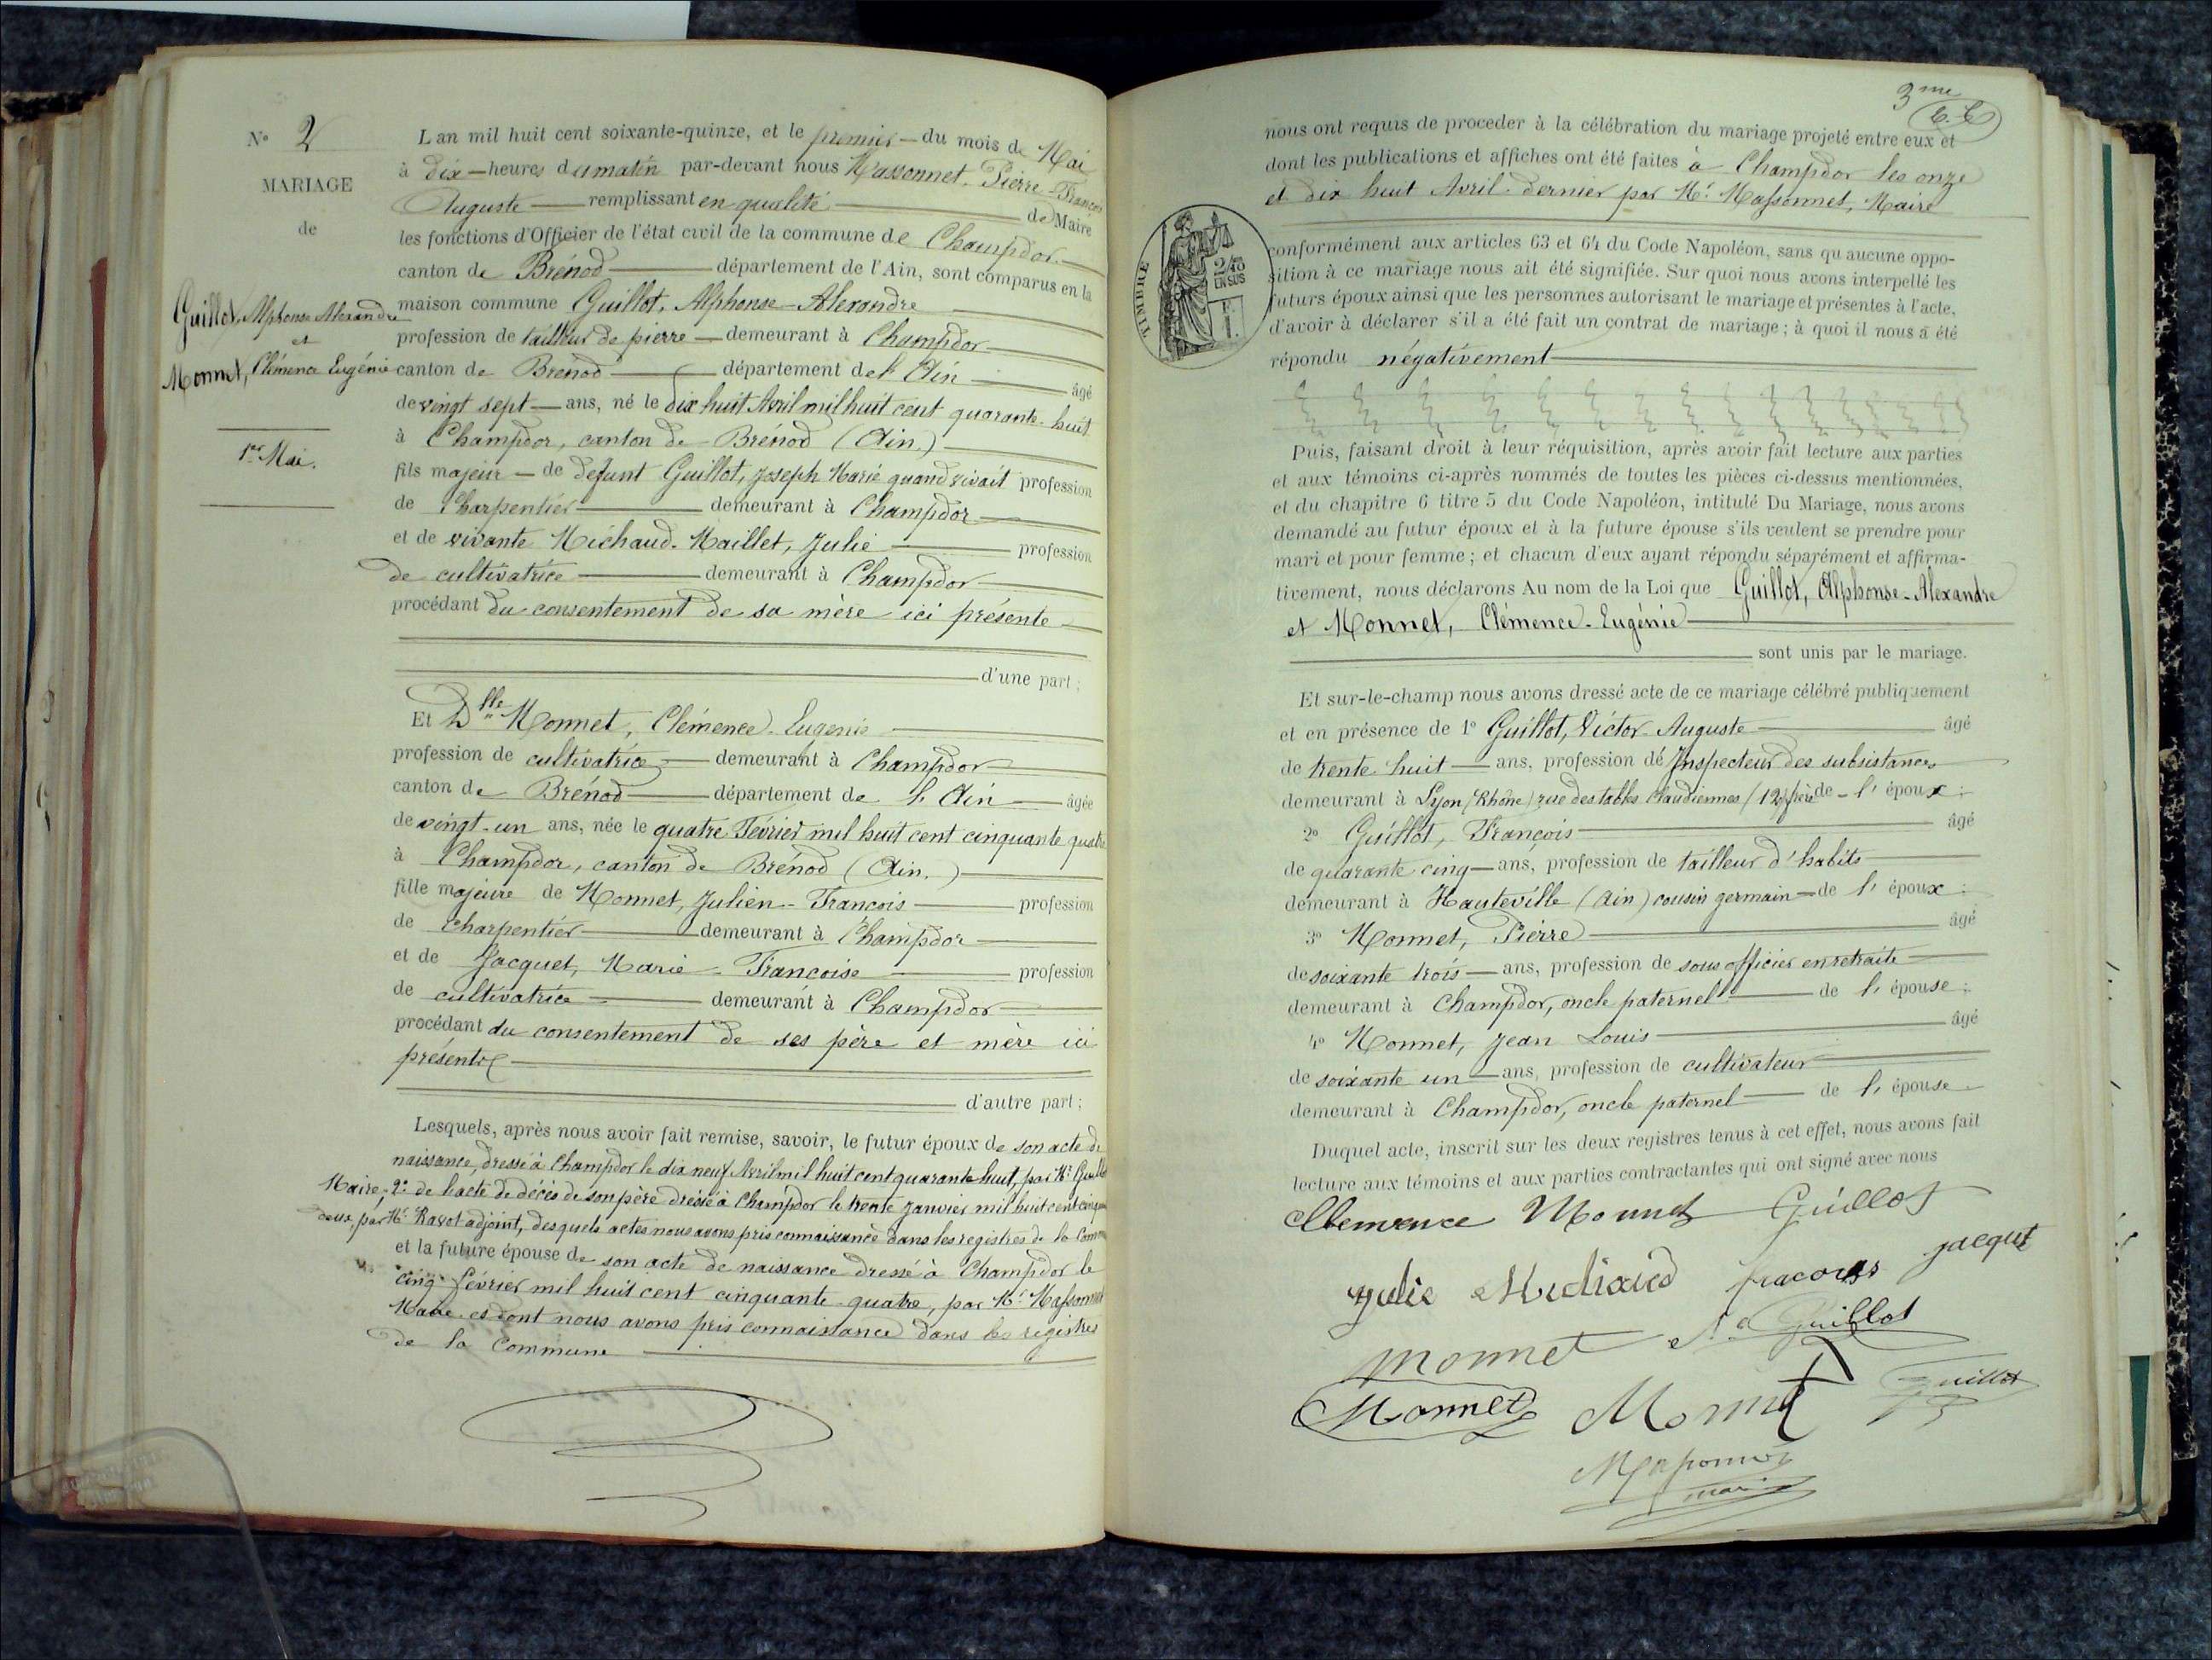 N° 2
MARIAGE
de
Guillot, Alphonse Alexandre
et
Monnet, Clémence Eugénie
1er Mai.
L'an mil huit cent soixante-quinze, et le premier du mois de Mai
à dix heures du matin par-devant nous Massonnet, Pierre-François
Auguste remplissant en qualité de Maire
les fonctions d'Officier de l'état civil de la commune de Champdor
canton de Brénod département de l'Ain, sont comparus en la
maison commune Guillot, Alphonse-Alexandre
profession de tailleur de pierre demeurant à Champdor
canton de Brénod département de l'Ain âgé
de vingt sept ans, né le dix huit Avril mil huit cent quarante-huit
à Champdor, canton de Brénod (Ain.)
fils majeur de défunt Guillot, Joseph Marie quand vivait profession
de Charpentier demeurant à Champdor
et de vivante Michaud-Maillet, Julie profession
de cultivatrice demeurant à Champdor
procédant du consentement de sa mère ici présente
d'une part;
Et Dlle Monnet, Clémence-Eugénie
profession de cultivatrice demeurant à Champdor
canton de Brénod département de l'Ain âgée
de vingt-un ans, née le quatre Février mil huit cent cinquante quatre
à Champdor, canton de Brénod (Ain.)
fille majeure de Monnet, Julien-François profession
de charpentier demeurant à Champdor
et de Jacquet, Marie-Françoise profession
de cultivatrice demeurant à Champdor
procédant du consentement de ses père et mère ici
présents
d'autre part;
Lesquels, après nous avoir fait remise, savoir, le futur époux de son acte de
naissance, dressé à Champdor le dix neuf Avril mil huit cent quarante huit, par Mr Guillot
Maire; 2° de l'acte de décès de son père dressé à Champdor le trente Janvier mil huit cent cinquante
deux, par Mr Ravot adjoint, desquels actes nous avons pris connaissance dans les registres de la Commune
et la future épouse de son acte de naissance dressé à Champdor le
cinq février mil huit cent cinquante-quatre, par Mr Massonnet
Maire et dont nous avons pris connaissance dans les registres
de la Commune
3me
nous ont requis de procéder à la célébration du mariage projeté entre eux et
dont les publications et affiches ont été faites à Champdor les onze
et dix huit Avril dernier par Mr Massonnet, Maire
TIMBRE
2/10
EN SUS
F
1.
conformément aux articles 63 et 64 du Code Napoléon, sans qu'aucune oppo-
sition à ce mariage nous ait été signifiée. Sur quoi nous avons interpellé les
futurs époux ainsi que les personnes autorisant le mariage et présentes à l'acte,
d'avoir à déclarer s'il a été fait un contrat de mariage; à quoi il nous a été
répondu négativement
Puis, faisant droit à leur réquisition, après avoir fait lecture aux parties
et aux témoins ci-après nommés de toutes les pièces ci-dessus mentionnées,
et du chapitre 6 titre 5 du Code Napoléon, intitulé Du Mariage, nous avons
demandé au futur époux et à la future épouse s'ils veulent se prendre pour
mari et pour femme; et chacun d'eux ayant répondu séparément et affirma-
tivement, nous déclarons Au nom de la Loi que Guillot, Alphonse-Alexandre
et Monnet, Clémence-Eugénie
sont unis par le mariage.
Et sur-le-champ nous avons dressé acte de ce mariage célébré publiquement
et en présence de 1° Guillot, Victor-Auguste âgé
de trente huit ans, profession de Inspecteur des subsistances
demeurant à Lyon (Rhône) rue des tables Claudiennes (12) frère de l'époux;
2° Guillot, François âgé
de quarante cinq ans, profession de tailleur d'habits
demeurant à Hauteville (Ain) cousin germain de l'époux;
3° Monnet, Pierre âgé
de soixante trois ans, profession de sous officier en retraite
demeurant à Champdor, oncle paternel de l'épouse;
4° Monnet, Jean Louis âgé
de soixante un ans, profession de cultivateur
demeurant à Champdor, oncle paternel de l'épouse
Duquel acte, inscrit sur les deux registres tenus à cet effet, nous avons fait
lecture aux témoins et aux parties contractantes qui ont signé avec nous
Clemence Monnet Guillot
Julie Michaud jacquet
monnet Guillot
Monnet Monnet Guillot
Massonnet
maire